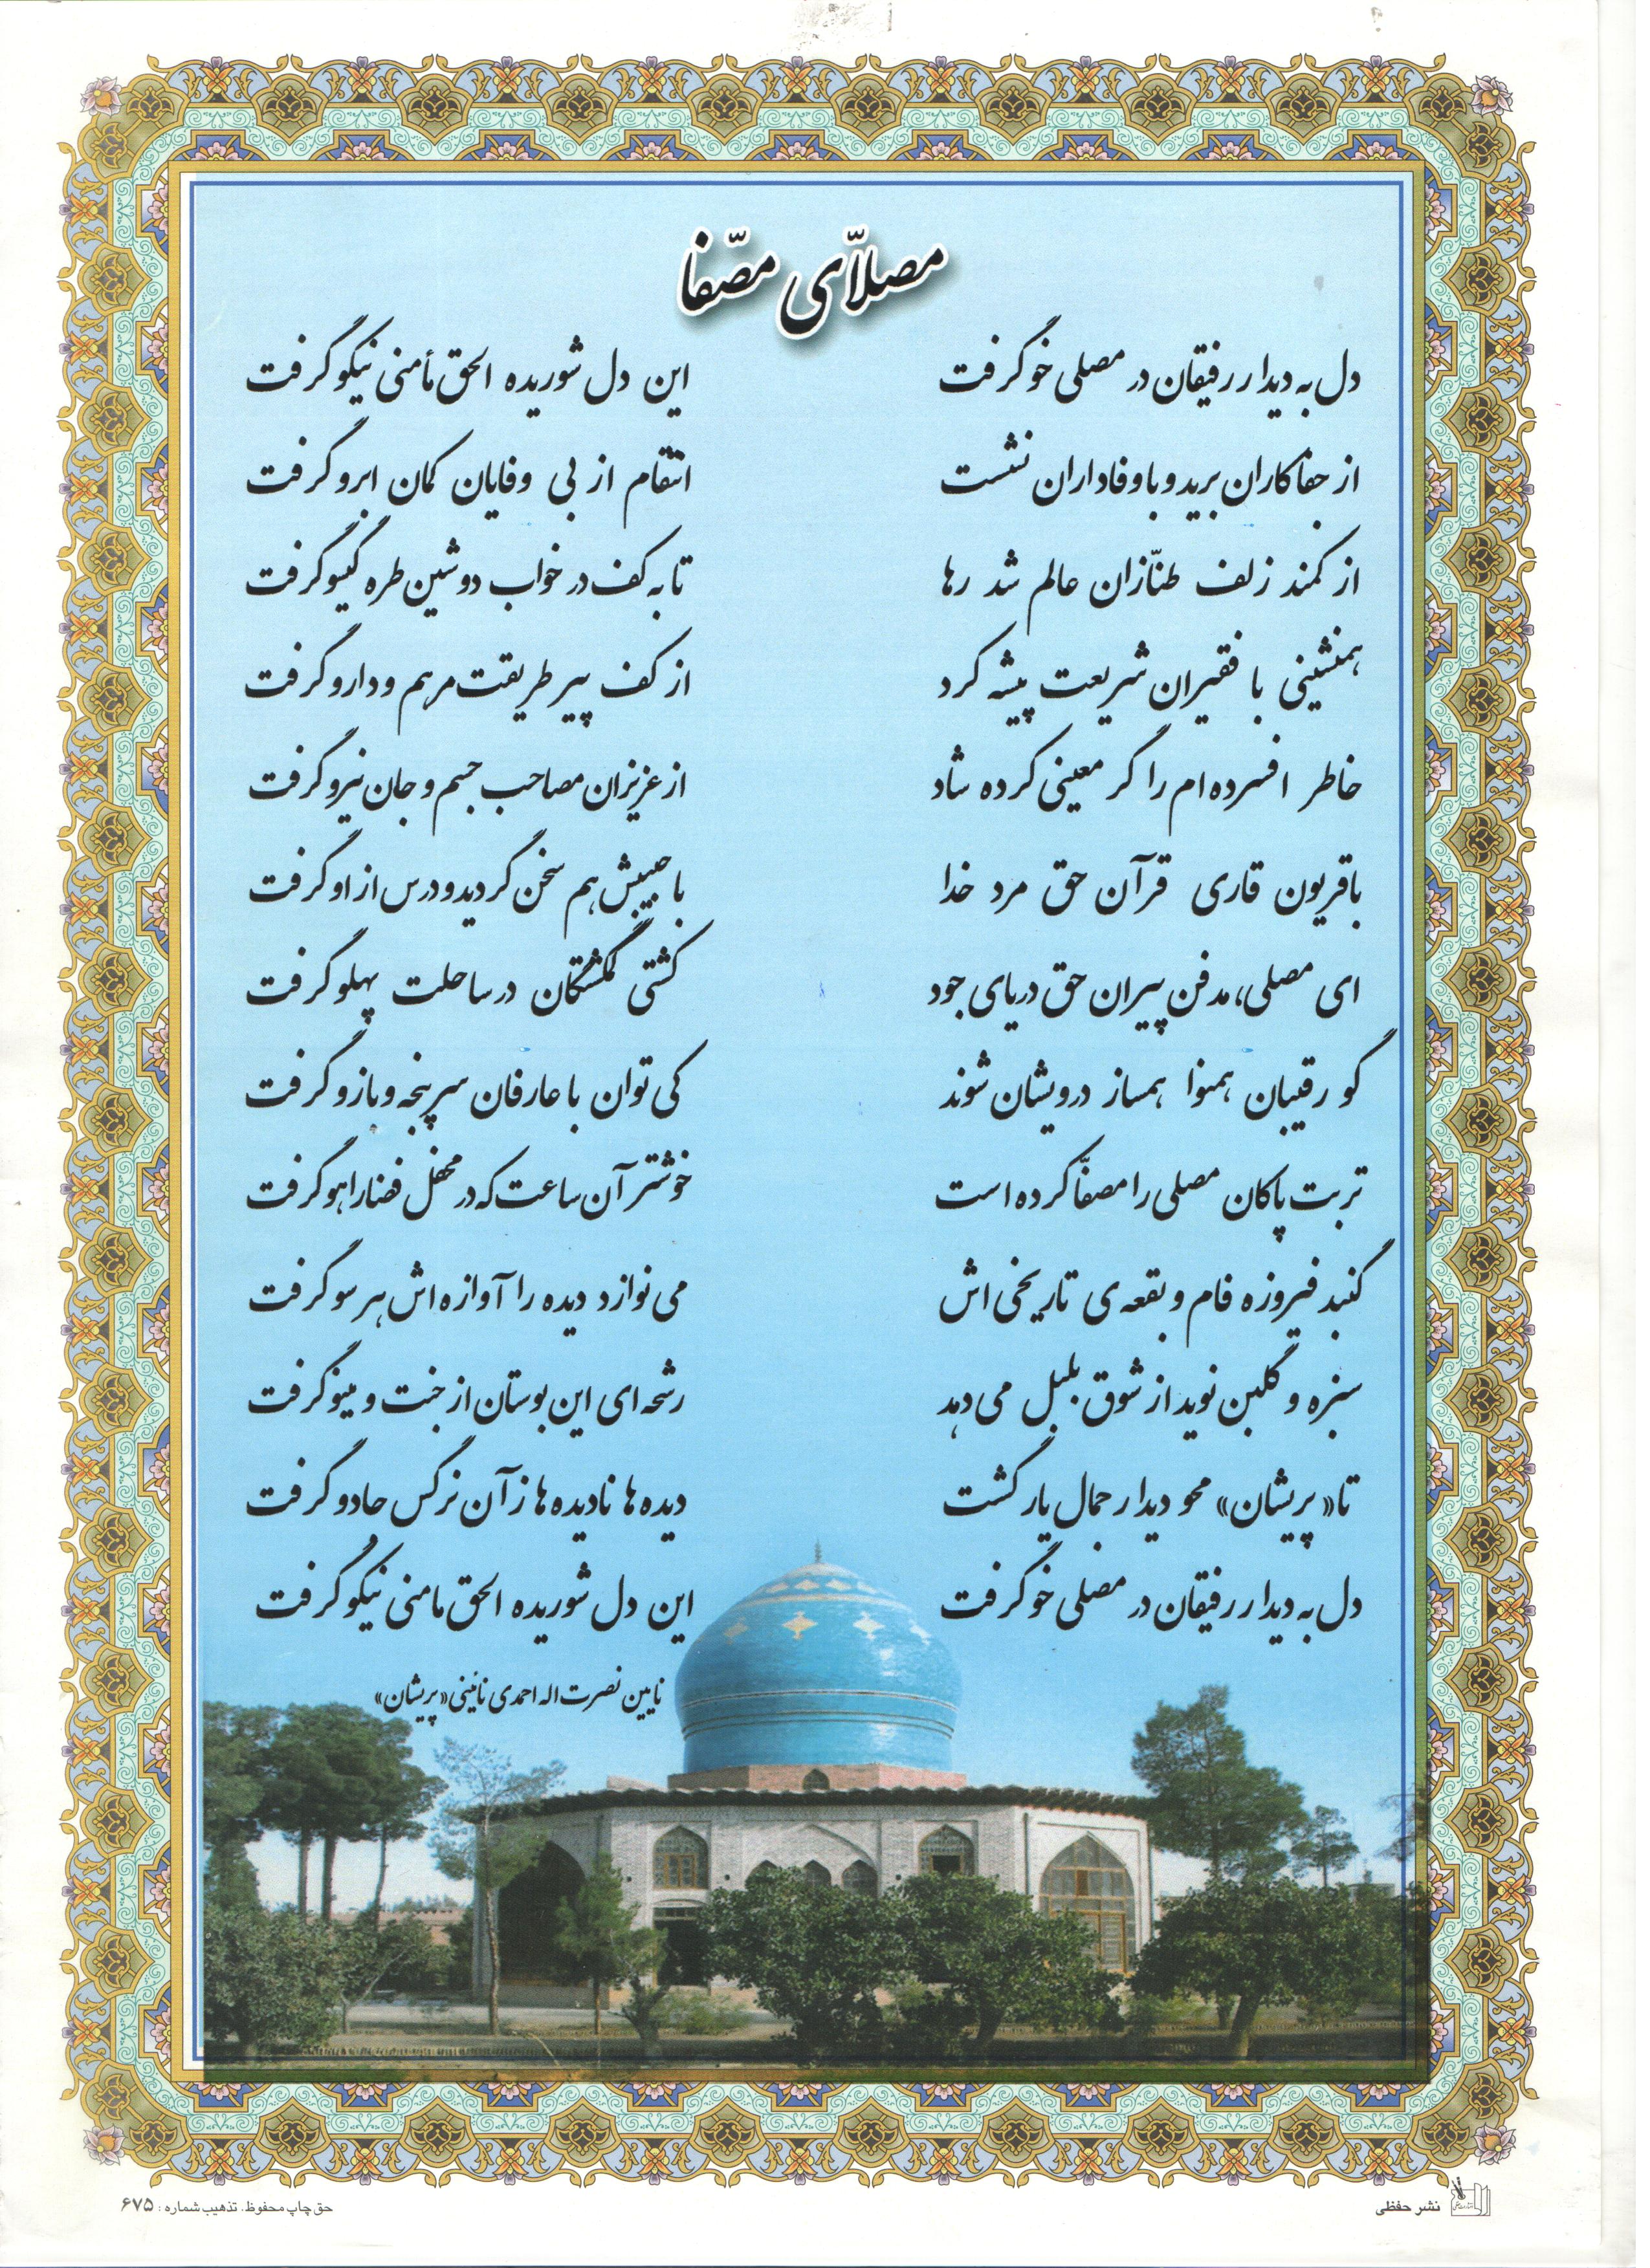 مصلاّی مصّفا
دل به دیدار رفیقان در مصلی خو گرفت این دل شوریده الحق مأمنی نیکو گرفت
از جفاکاران برید و با وفاداران نشست انتقام از بی وفایان کمان ابرو گرفت
از کمند زلف طنّازان عالم شد رها تا به کف در خواب دوشین طره گیسو گرفت
همنشینی با فقیران شریعت پیشه کرد از کف پیر طریقت مرهم و دارو گرفت
خاطر افسرده ام را گر معینی کرده شاد از عزیزان مصاحب جسم و جان نیرو گرفت
باقریون قاری قرآن حق مرد خدا با حبیبش هم سخن گردید و درس از او گرفت
ای مصلی، مدفن پیران حق دریای جود کشتی گمگشتگان در ساحلت پهلو گرفت
گو رقیبان همنوا همساز درویشان شوند کی توان با عارفان سرپنجه و بازو گرفت
تربت پاکان مصلی را مصفّا کرده است خوشتر آن ساعت که در محفل فضا را هو گرفت
گنبد فیروزه فام و بقعه ی تاریخی اش می نوازد دیده را آوازه اش هر سو گرفت
سبزه و گلبن نوید از شوق بلبل می دهد رشحه ای این بوستان از جنت و مینو گرفت
تا «پریشان» محو دیدار جمال یار گشت دیده ها نادیده ها ز آن نرگس جادو گرفت
دل به دیدار رفیقان در مصلی خو گرفت این دل شوریده الحق مامنی نیکو گرفت
نایین نصرت اله احمدی نائینی «پریشان»
نشر حفظی
حق چاپ محفوظ. تذهیب شماره : ۶۷۵